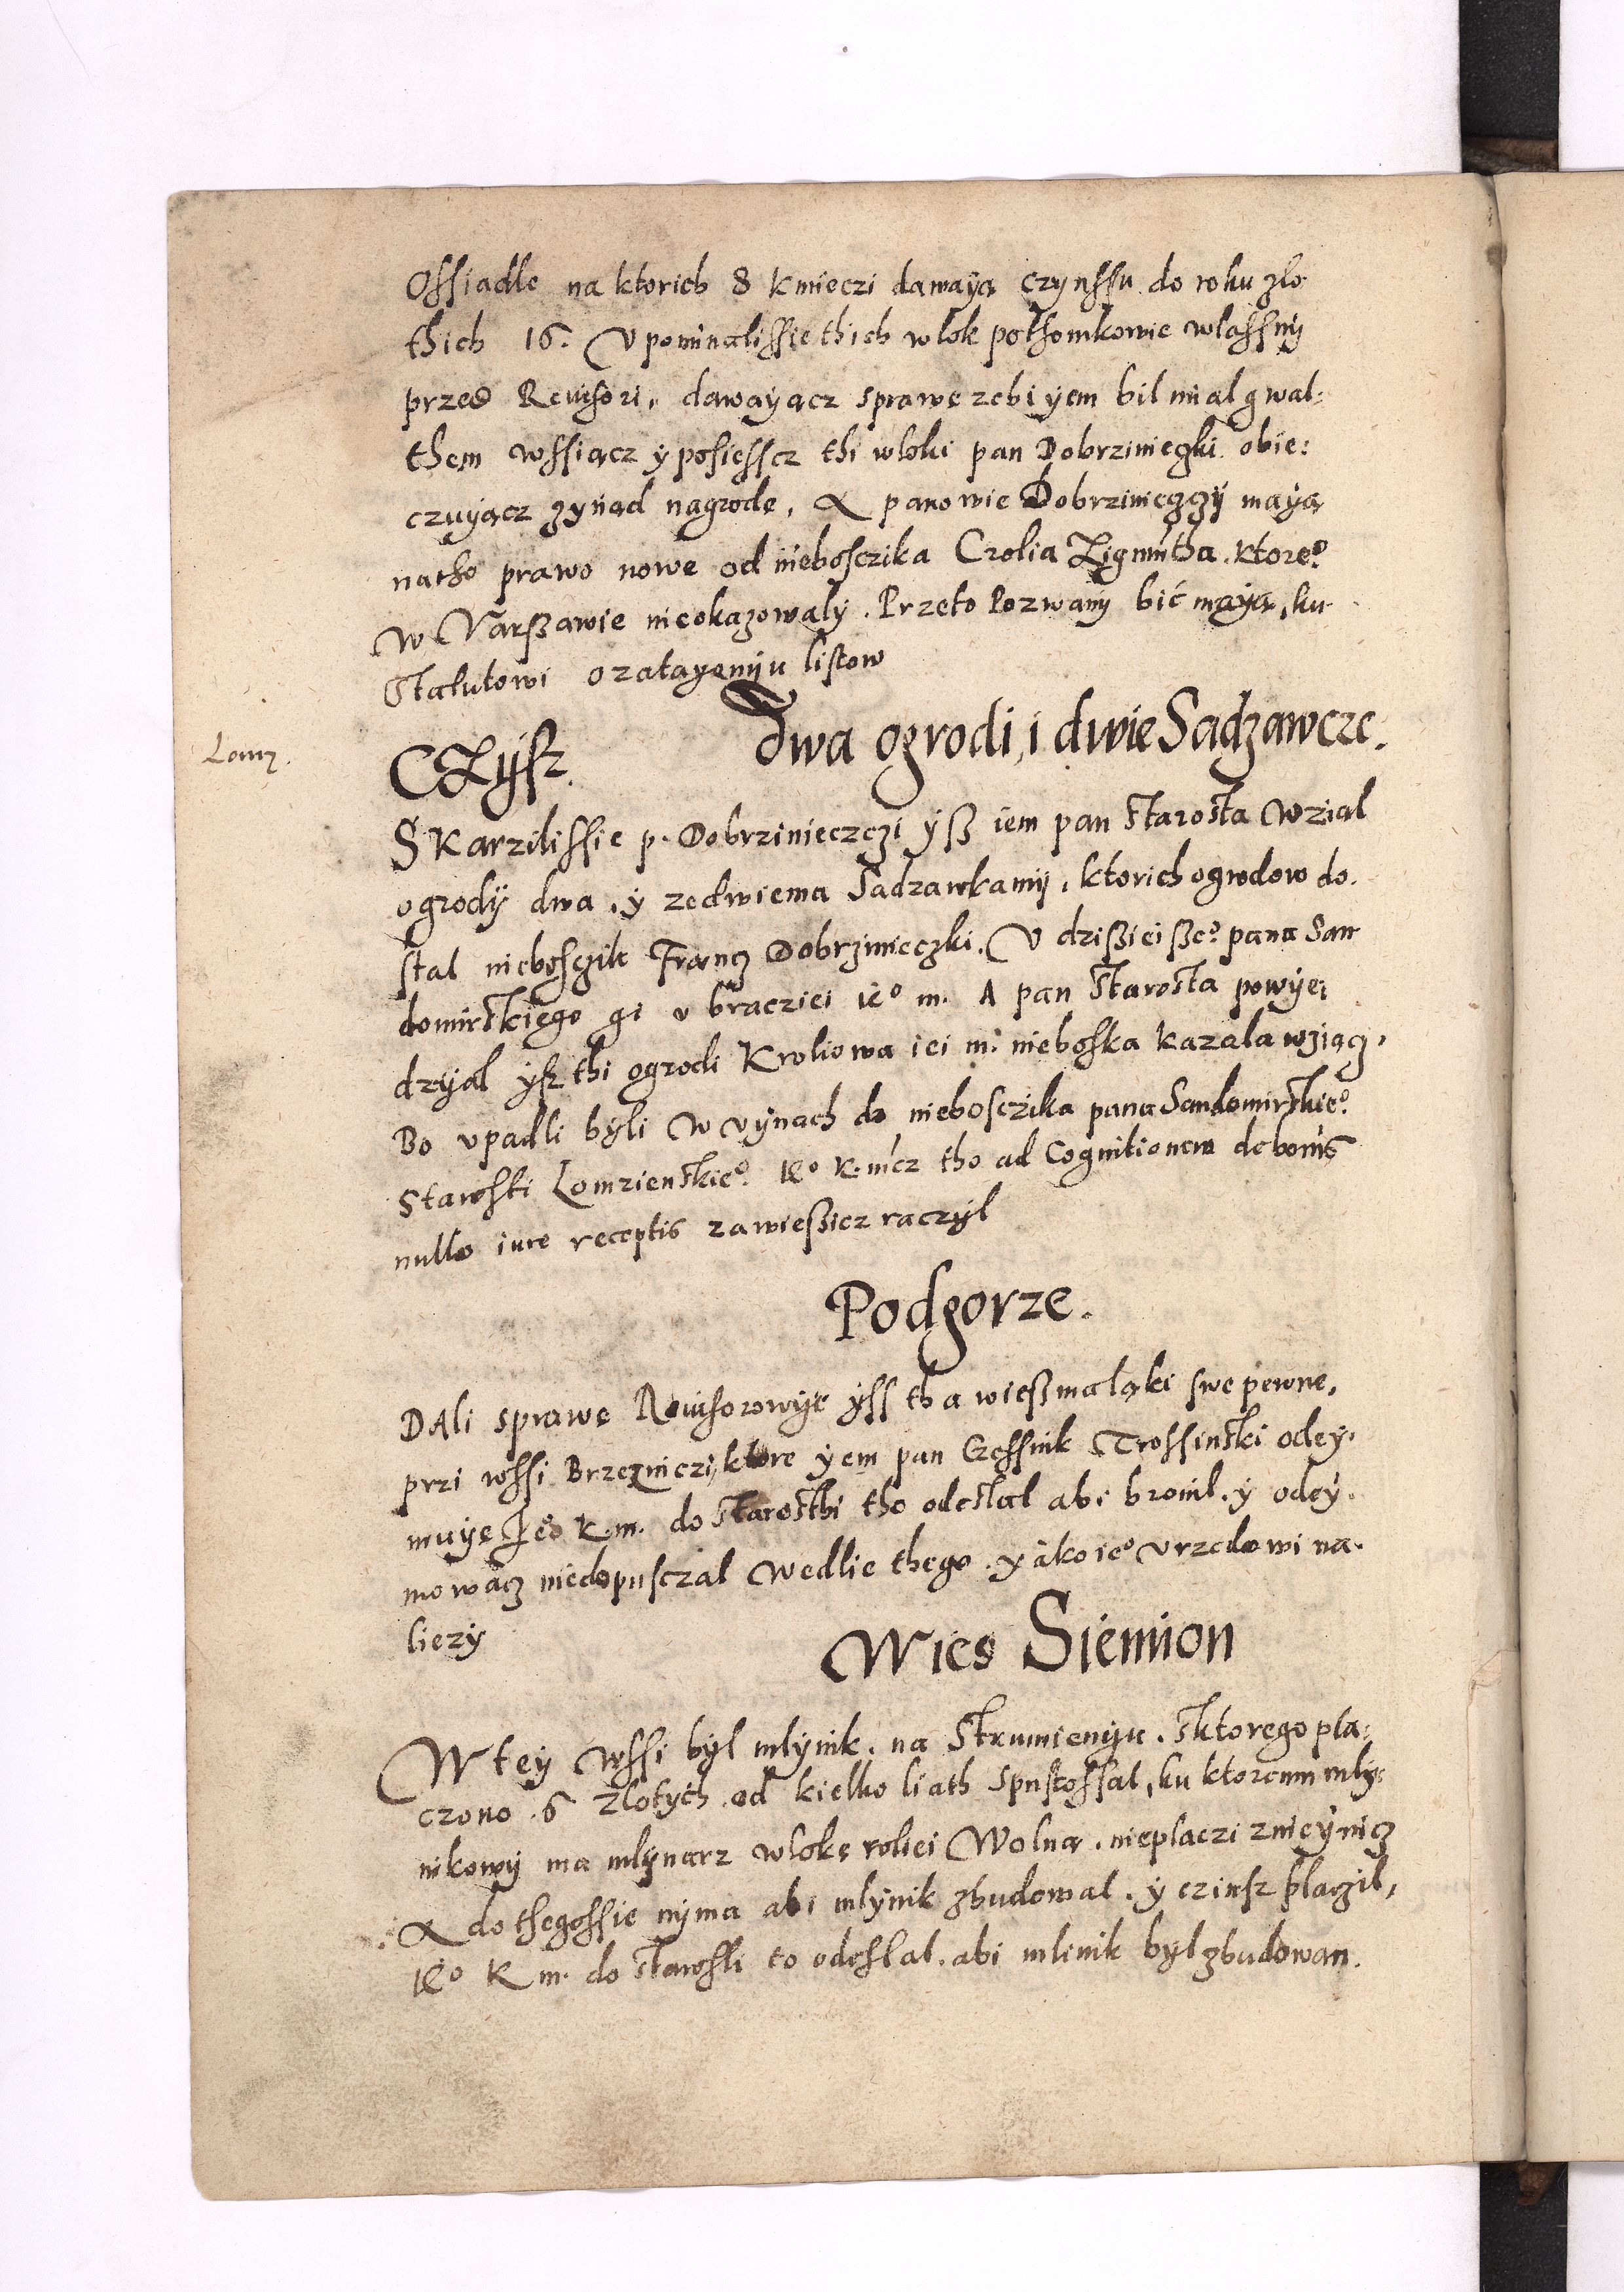 Ossiadle na ktorich 8 kmieczi dawaya czynssu do roku zlo
thich 16. Vpominalissie thich wlok pothomkowie wlassny
przed Reuisori, dawayacz sprawe zebi yem bil mial gwal:
them wssiacz y posiesscz thi wloki pan Dobrziniegki obie:
czuyacz zynąd nagrode, A panowie Dobrziniegzy maya
natho prawo nowe od nieboszika Crolia Zigmūtha. ktore°
W Varßawie nieokazowaly. Przeto Pozwany bić mayą, ku
Statutowi o zatayenyu listow
Dwa ogrodi, i dwie Sadzawcze.
Lomz.
CZysz.
SKarzilissie p. Dobrzinieczczi yß iem pan Starosta wzial
ogrody dwa, y zedwiema Sadzawkamy, ktorich ogrodow do.
stal nieboszik Francz Dobrzinieczki. V dzißieißc° pana San
domirskiego gi v bracziei ie° m. A pan Starosta powye:
dzyal ysz thi ogrodi Kroliowa iei m: nieboska kazala wziącz,
Bo vpadli byli w vynach do nieboszika pana Sandomirskie°
Starosti Lomzienskie°. Ie° K. mcz tho ad Cognitionem de bonis
nullo iure receptis zawießicz raczyl
Podgorze.
DAli sprawe Reuisorowye yss tha wießmalaki swe pewne,
przi wssi Brzezniczi, ktore yem pan Czessnik Trossinski odey.
muye Ie° K. m. do Starosthi tho odestal abi bronil. y odey.
mowacz niedopusczal wedlie thego. yako ie° vrzedowi na.
liezy
Wies Siemion
W tey wssi byl mlynik. na Strumienyu. sktorego pla:
czono. 6 zlotych. od kielko liath spustossal, ku ktoremu mly:
nikowy ma mlynarz wloke roliei Wolna. nieplaczi zniey nicz
A do thegossie nyma abi mlynik zbudowal. y czinsz placzil,
Ie° K m. do Starosti to odeslal. abi mlinik byl zbudowan.